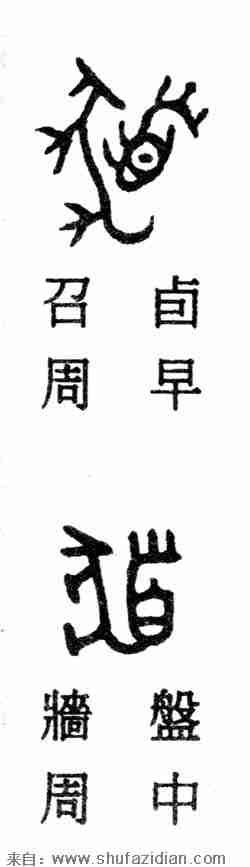 召卣
周早
牆盤
周中
来自：www.shufazidian.com